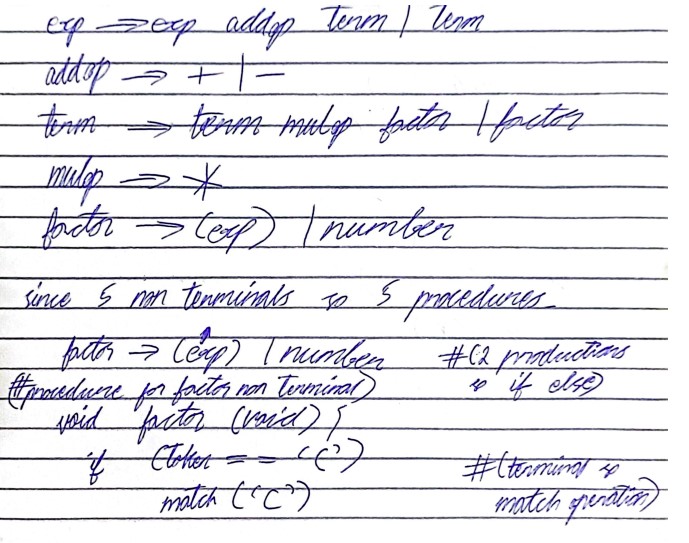 exp → exp addop term | term
addop → + | -
term → term mulop factor | factor
mulop → *
factor → (exp) | number
since 5 non terminals so 5 procedures
factor → (exp) | number #(2 productions
(#procedure for factor non terminal) so if else)
void factor (void) {
if (token == '(') #(terminal so
match ('(') match operation)